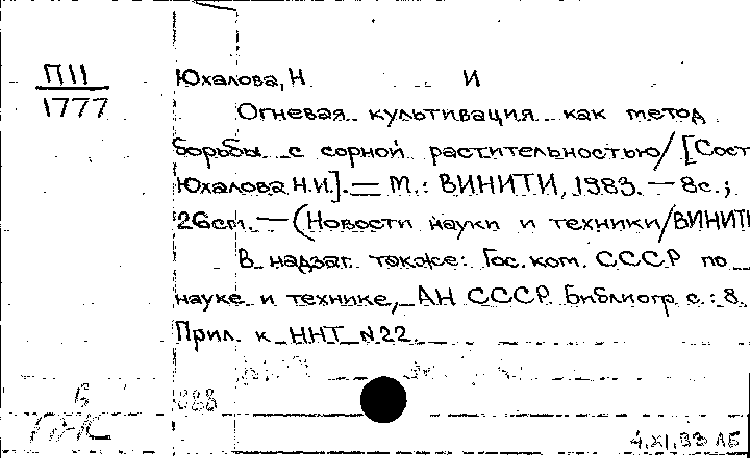 П11
1777
Юхалова, Н И
Огневая культивация как метод
борьбы с сорной растительностью/[Сост.
Юхалова Н.И.]. — М.: ВИНИТИ, 1983. — 8с.;
26см. — (Новости науки и техники/ВИНИТИ
В надзаг. также: Гос. ком. СССР по
науке и технике, АН СССР. Библиогр. с.: 8.
Прил. к ННТ N22.
Б
888
4.XI.83 АБ